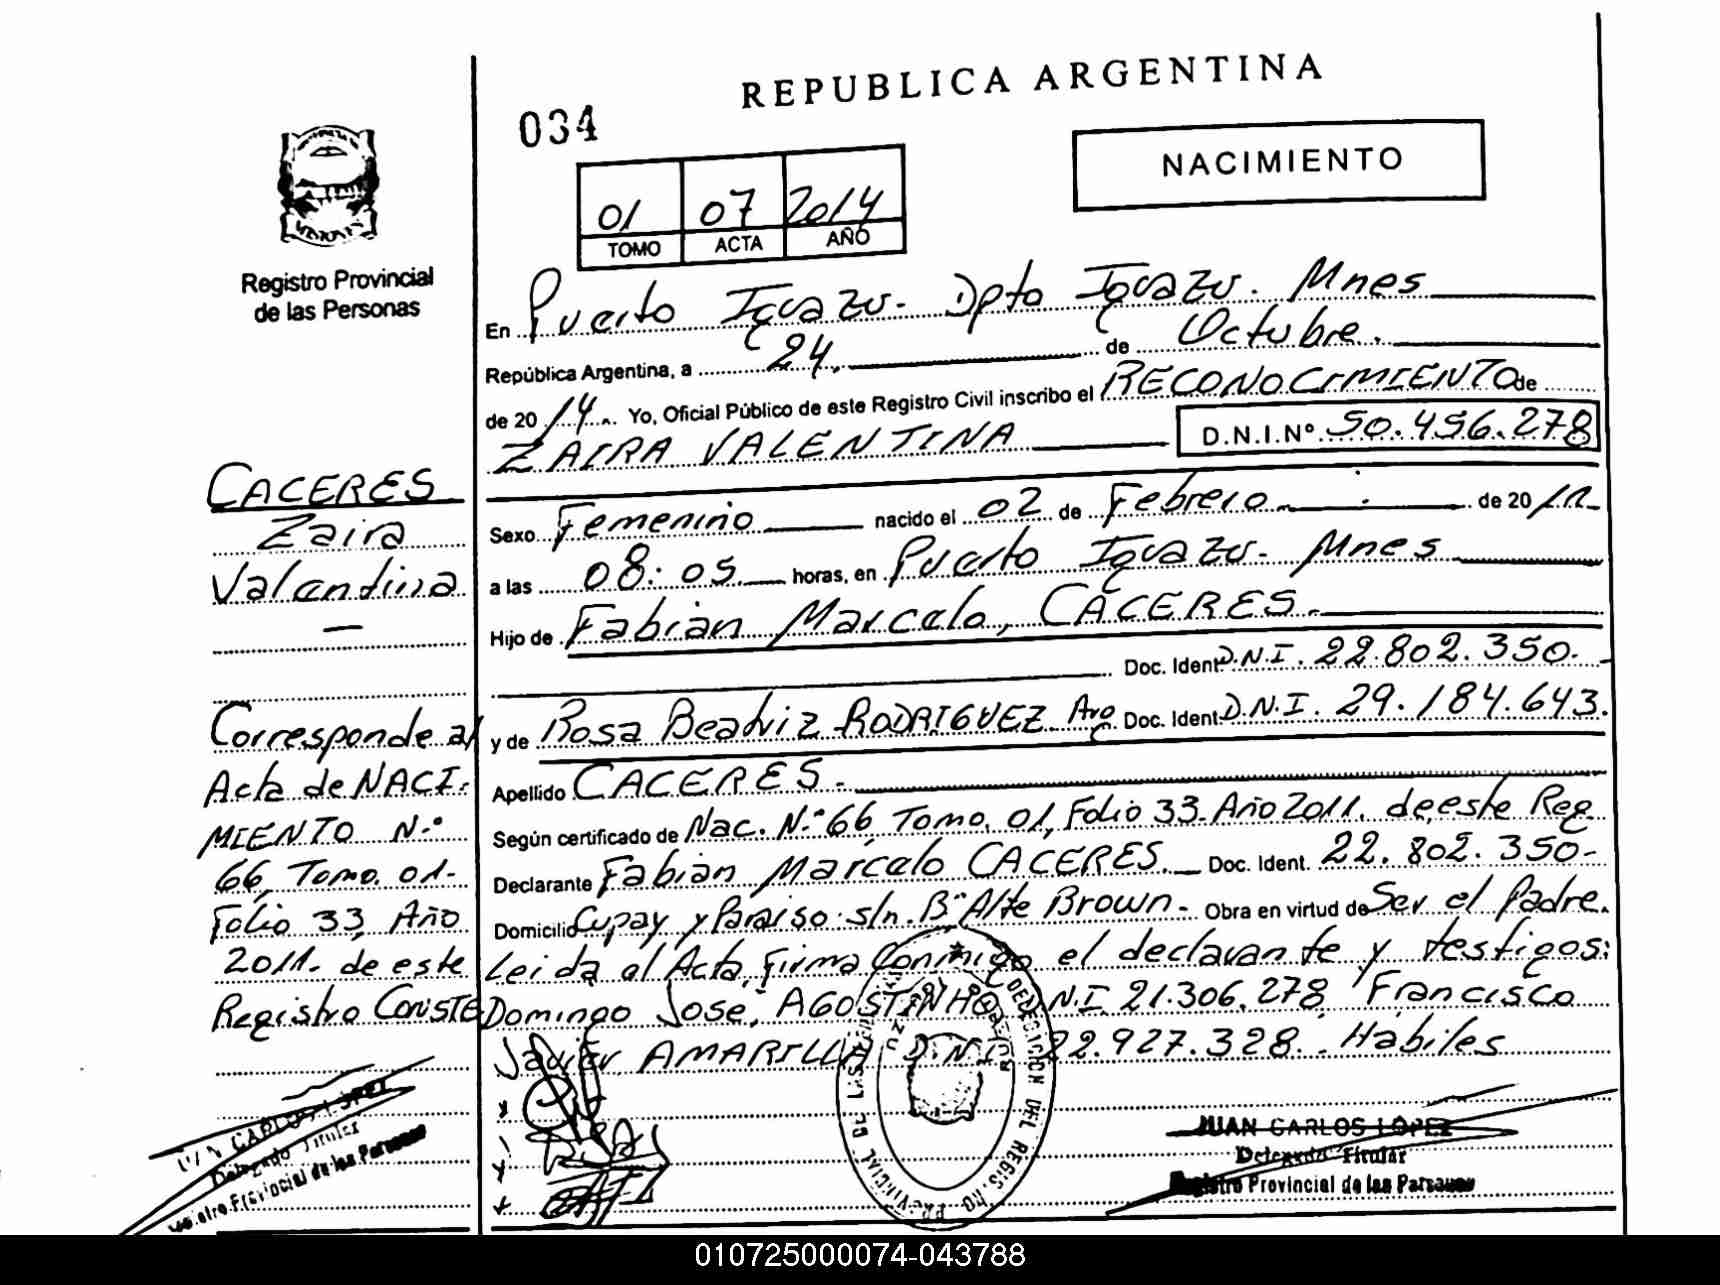 REPUBLICA ARGENTINA
034
NACIMIENTO
01 07 2014
TOMO ACTA AÑO
Registro Provincial
de las Personas
En Puerto Iguazu. Dpto Iguazu. Mnes
República Argentina, a 24. de Octubre.
de 20 14. Yo, Oficial Público de este Registro Civil inscribo el RECONOCIMIENTO de
ZAIRA VALENTINA D.N.I.Nº 50.456.278
Sexo Femenino nacido el 02 de Febrero de 2011
a las 08:05 horas, en Puerto Iguazu. Mnes
Hijo de Fabian Marcelo, CACERES.
Doc. Ident. D.N.I. 22.802.350.
y de Rosa Beatriz RODRIGUEZ Arg. Doc. Ident. D.N.I. 29.184.643.
Apellido CACERES.
Según certificado de Nac. N.º 66 Tomo. 01, Folio 33. Año 2011. de este Reg.
Declarante Fabian Marcelo CACERES. Doc. Ident. 22.802.350.
Domicilio Cupay y Paraiso s/n. Bº Alte Brown. Obra en virtud de Ser el Padre.
Leida el Acta, Firma Conmigo el declarante y testigos:
Domingo Jose, AGOSTINHO D.N.I 21.306.278 Francisco
Javier AMARILLA D.N.I 22.927.328. Habiles
CACERES
Zaira
Valentina
—
Corresponde al
Acta de NACI-
MIENTO N.º
66, Tomo. 01.
Folio 33, Año
2011. de este
Registro CONSTE
JUAN CARLOS LÓPEZ
Delegado Titular
Registro Provincial de las Personas
DELEGACION DEL REGISTRO PROVINCIAL DE LAS
JUAN CARLOS LÓPEZ
Delegado Titular
Registro Provincial de las Personas
010725000074-043788